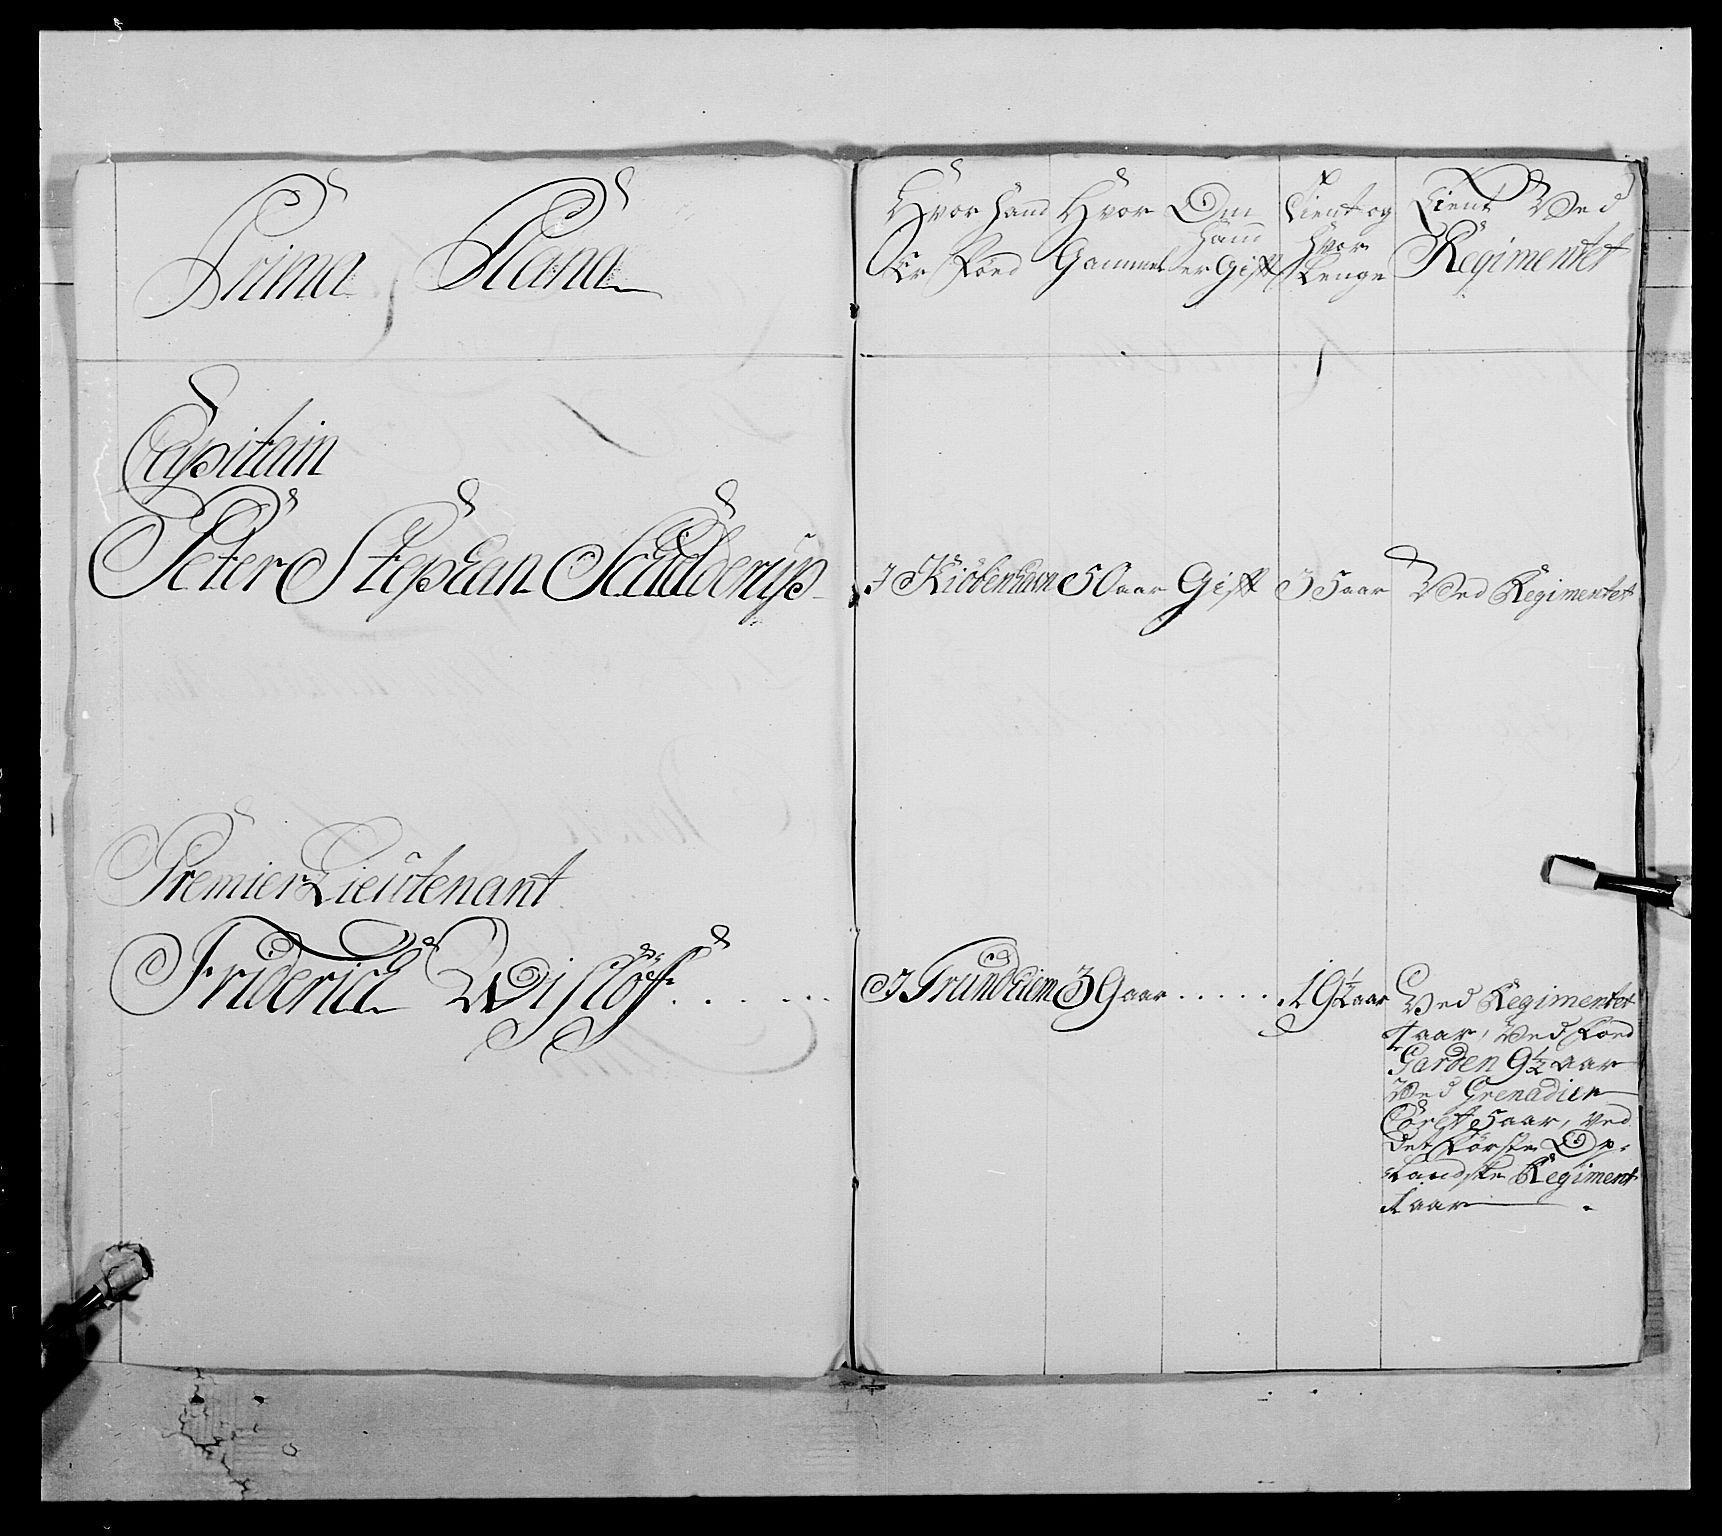 Prima Plana
Hvor hand Er Föed
Hvor Gammel
Om hand er Gift
Tient og hvor Lenge
Tient Ved Regimentet
Capitain
Peter Stephan Schilderup
I Kiöbenhavn 50 aar Gift 35 aar Ved Regimentet
Premier Lieutenant
Friderich Wislöff . . . . . .
I Trundhiem 39 aar . . . . . . 19½ aar Ved Regimentet
4 aar, Ved Foed
Garden 9½ aar
Ved Grenadier
Cöret 5 aar, Ved
Det Förste Op-
Landske Regiment
1 aar